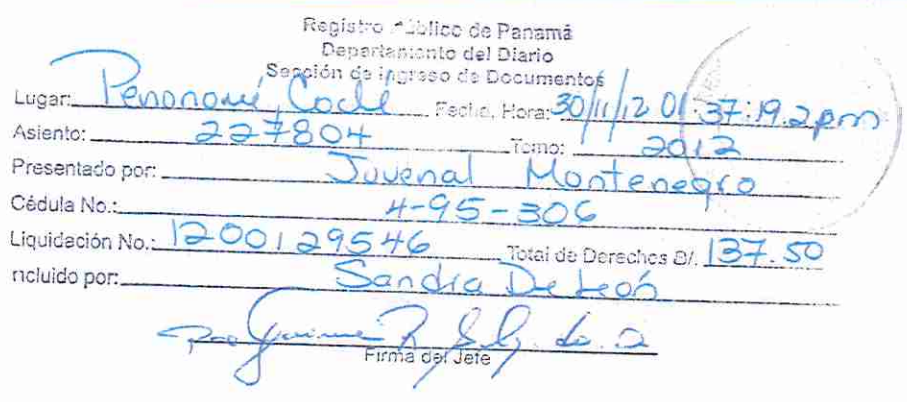 Registro Público de Panamá
Departamento del Diario
Sección de Ingreso de Documentos
Lugar: Penonomé, Coclé Fecha, Hora: 30/11/12 01:37:19.2pm
Asiento: 227804 Tomo: 2012
Presentado por: Juvenal Montenegro
Cédula No.: 4-95-306
Liquidación No.: 1200129546 Total de Derechos B/. 137.50
ncluido por: Sandra De León
Firma del Jefe